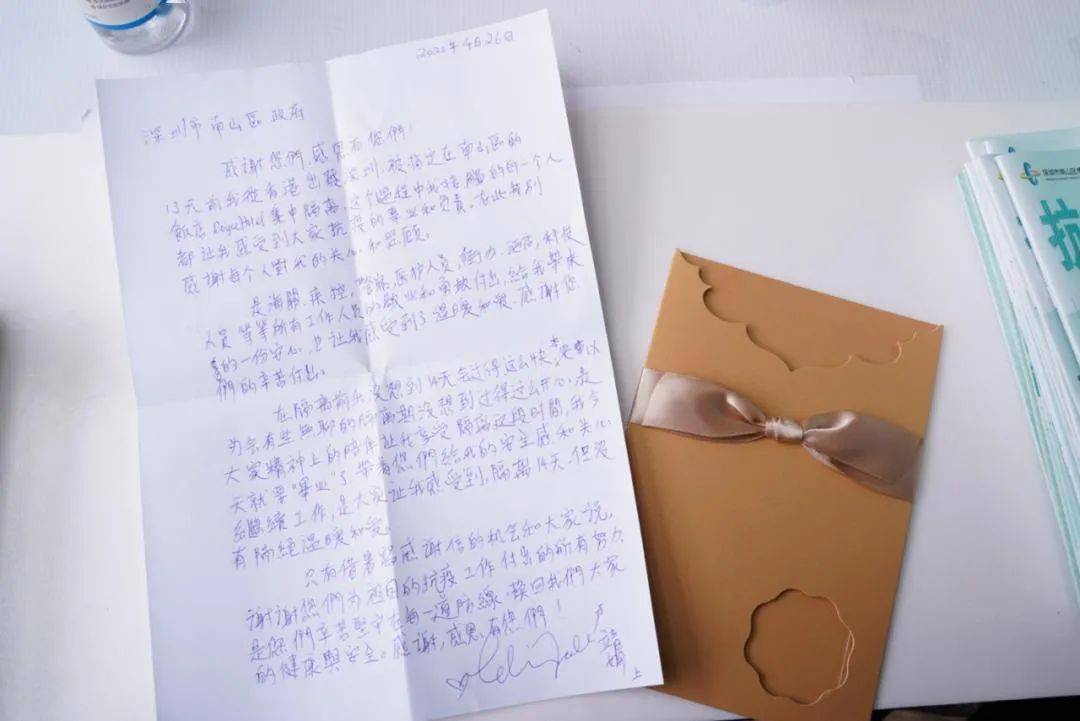 2020年4月26日
深圳市南山區政府
感謝您們,感恩有您們!
13天前我從香港出發深圳,被指定在南山區的
飯店 Royal Hotel 集中隔离,这个過程中我接觸的每一个人
都让我感受到大家抗疫的專业和負責。在此特別
感謝每个人對我的关心和照顾。
是海關、疾控、警察、医护人员,街办、酒店、科技
人员 等等所有工作人员的敬业和勇敢付出,給我帶來
的一份安心,也让我感受到了温暖和爱。感谢您
們的辛苦付出。
在隔离前我没想到14天会过得这么快,
为会有些無聊的隔离期没想到过得这么开心,是
大家精神上的陪伴让我享受隔离这段时間,我今
天就要"畢业"了,带着您們給我的安全感和关心
繼續工作,是大家让我感受到,隔离14天,但没
有隔絕温暖和爱。
只有借着感谢信的机会和大家说,
谢谢您們为祖国的抗疫工作付出的所有努力,
是您們辛苦堅守在每一道防線,換回我們大家
的健康與安全。感谢,感恩有您們!
上
抗